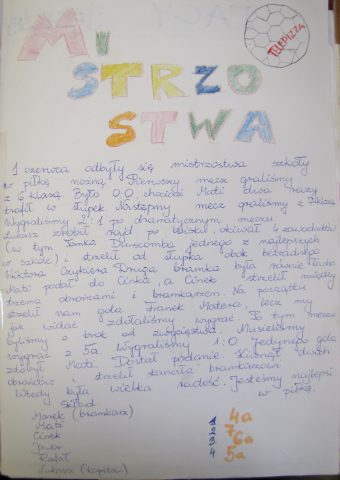 MI
STRZO
STWA
TELEPIZZA
1 czerwca odbyły się mistrzostwa szkoły
w piłkę nożną. Pierwszy mecz graliśmy
z 6 klasą. Było 0:0, chociaż Mati dwa razy
trafił w słupek. Następny mecz graliśmy z 7 klasą
Wygraliśmy 2:1 po dramatycznym meczu
Łukasz zrobił rajd po boisku, okiwał 4 zawodników
(w tym Tomka Dunscomba jednego z najlepszych
w szkole) i strzelił od słupka obok bezradnego
Wiktora Czykiera Druga bramka była równie ładna
Mati podał do Cinka, a Cinek strzelił między
trzema obrońcami i bramkarzem. Na początku
strzelił nam gola Franek Matera, lecz my
jak widać zdołaliśmy wygrać. Po tym meczu
byliśmy o krok od zwycięstwa. Musieliśmy
wygrać z 5a. Wygraliśmy 1:0 Jedynego gola
zdobył Mati. Dostał podanie. Kiwnął dwóch
obrońców i strzelił bramkarzowi
Wtedy była wielka radość. Jesteśmy najlepsi
w piłkę.
Skład:
Marek (bramkarz)
Mati
Cinek
Rafał
Łukasz (kapitan)
1 4a
2 7
3 6a
4 5a